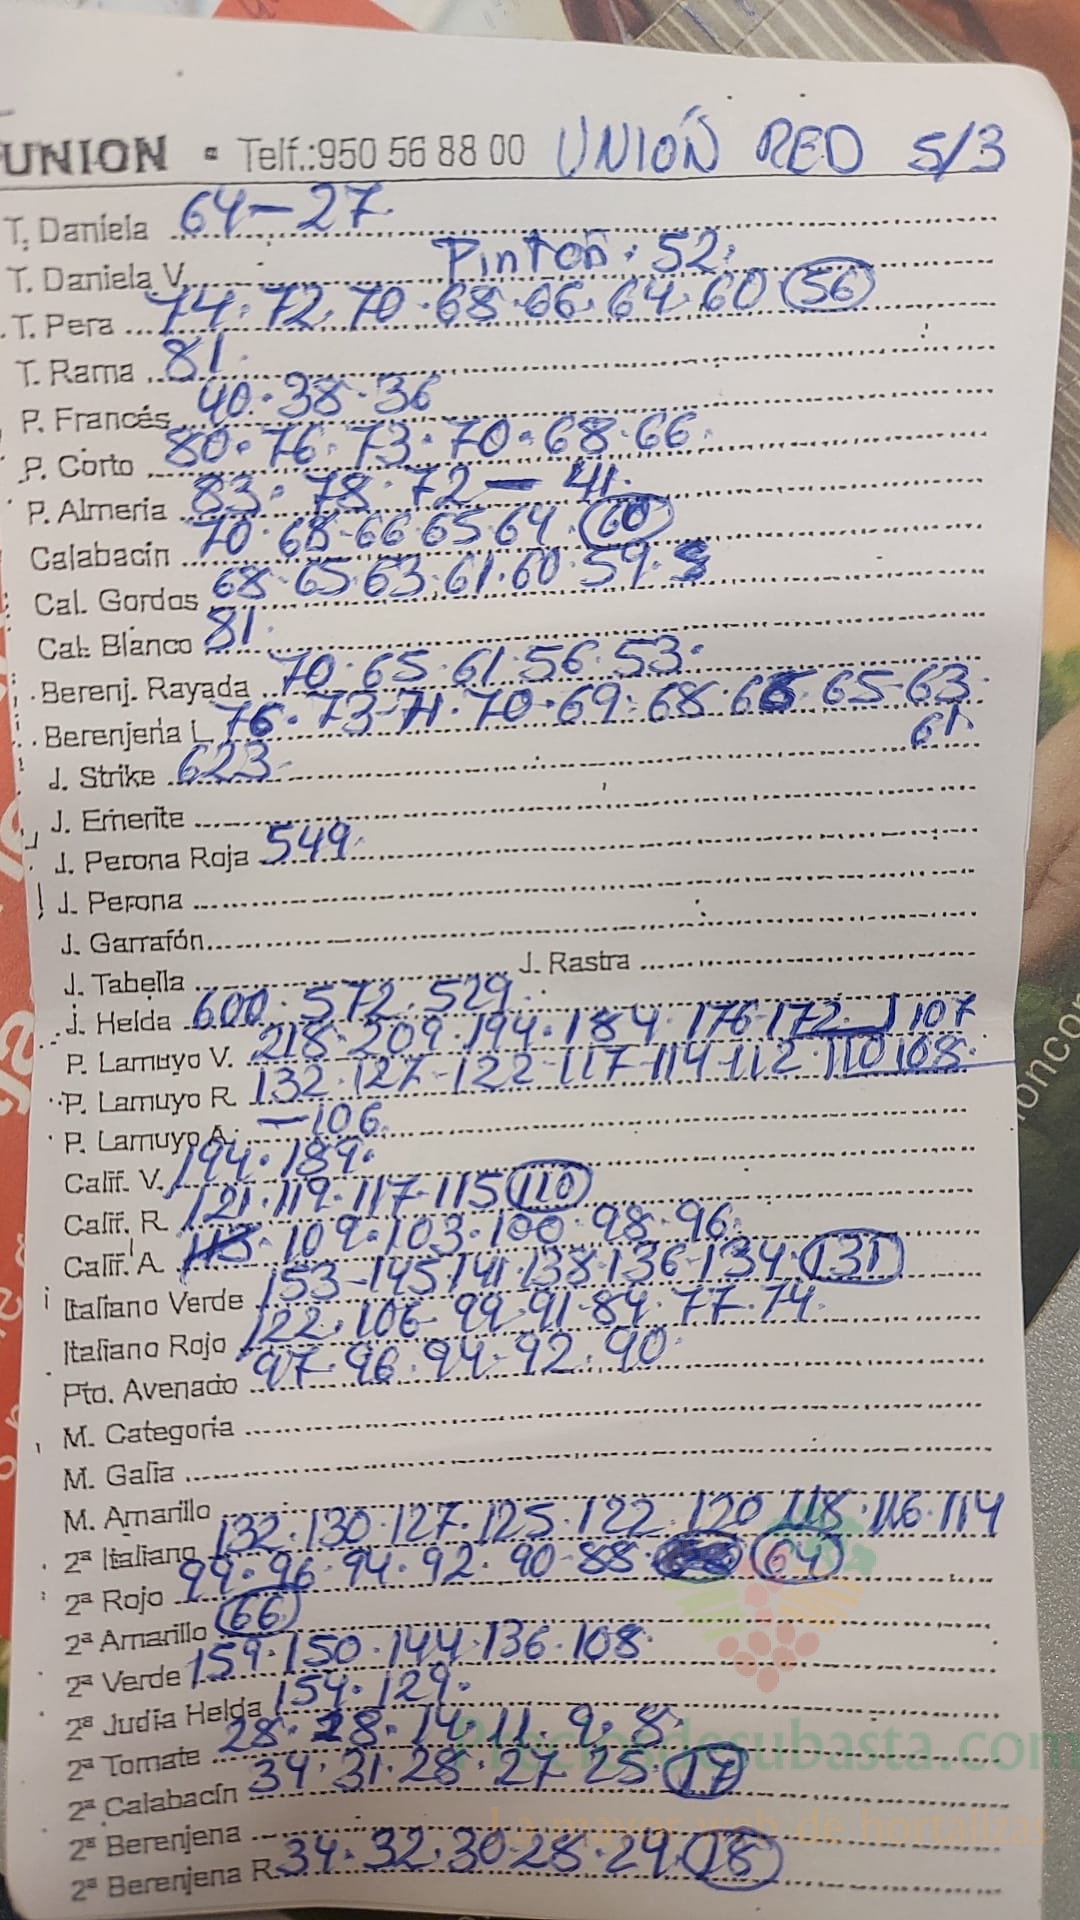 UNION • Telf.:950 56 88 00 UNIÓN RED 5/3
T. Daniela 64-27.
T. Daniela V. Pinton. 52.
T. Pera 74. 72. 70. 68. 66. 64. 60 (56)
T. Rama 81.
P. Francés 40. 38. 36
P. Corto 80. 76. 73. 70. 68. 66.
P. Almeria 83. 78. 72 - 41.
Calabacín 70. 68-66 65 64. (60)
Cal. Gordos 68. 65. 63. 61. 60. 59.
Cal. Blanco 81.
Berenj. Rayada 70. 65. 61. 56. 53.
Berenjena L. 76. 73-71. 70. 69. 68. 66 65-63.
61
J. Strike 623-
J. Emerite
J. Perona Roja 549.
J. Perona
J. Garrafón
J. Tabella J. Rastra
J. Helda 600. 572. 529.
P. Lamuyo V. 218. 209. 194. 184. 176-172. 107
P. Lamuyo R. 132. 127-122-117-114-112. 110 108.
P. Lamuyo A. -106.
Calif. V. 194. 189.
Calif. R. 121. 119. 117-115 (110)
Calif. A. 113. 109. 103. 100. 98. 96.
Italiano Verde 153-145 141. 138. 136-134. (131)
Italiano Rojo 122. 106. 99. 91-84. 77. 74.
Pto. Avenado 97-96. 94. 92. 90.
M. Categoria
M. Galia
M. Amarillo
2ª Italiano 132. 130. 127. 125. 122. 120 118. 116. 114
2ª Rojo 99. 96. 94. 92. 90-88 (64)
2ª Amarillo (66)
2ª Verde 159. 150. 144. 136. 108.
2ª Judía Helda 154. 129.
2ª Tomate 28. 18. 14. 11. 9. 8.
2ª Calabacín 34. 31. 28. 27. 25. (17)
2ª Berenjena
2ª Berenjena R. 34. 32. 30. 28. 24. (18)
Preciosdesubasta.com
La mayor web de hortalizas